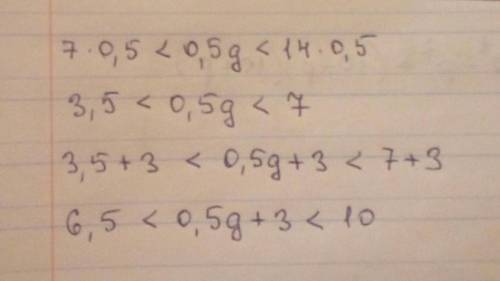 7 · 0,5 < 0,5g < 14 · 0,5
3,5 < 0,5g < 7
3,5 + 3 < 0,5g + 3 < 7 + 3
6,5 < 0,5g + 3 < 10